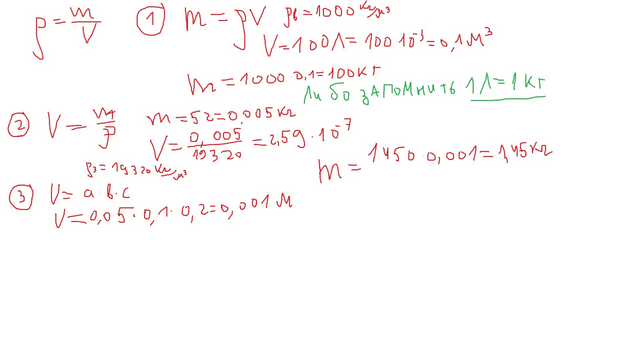 ρ = m/V
① m = ρV ρв = 1000 кг/м³
V = 100л = 100·10⁻³ = 0,1 м³
m = 1000·0,1 = 100кг
Либо запомнить 1л = 1кг
② V = m/ρ m = 5г = 0,005кг
V = 0,005/19320 = 2,59·10⁻⁷
ρз = 19320 кг/м³
m = 1450·0,001 = 1,45кг
③ V = a в·с
V = 0,05·0,1·0,2 = 0,001 м